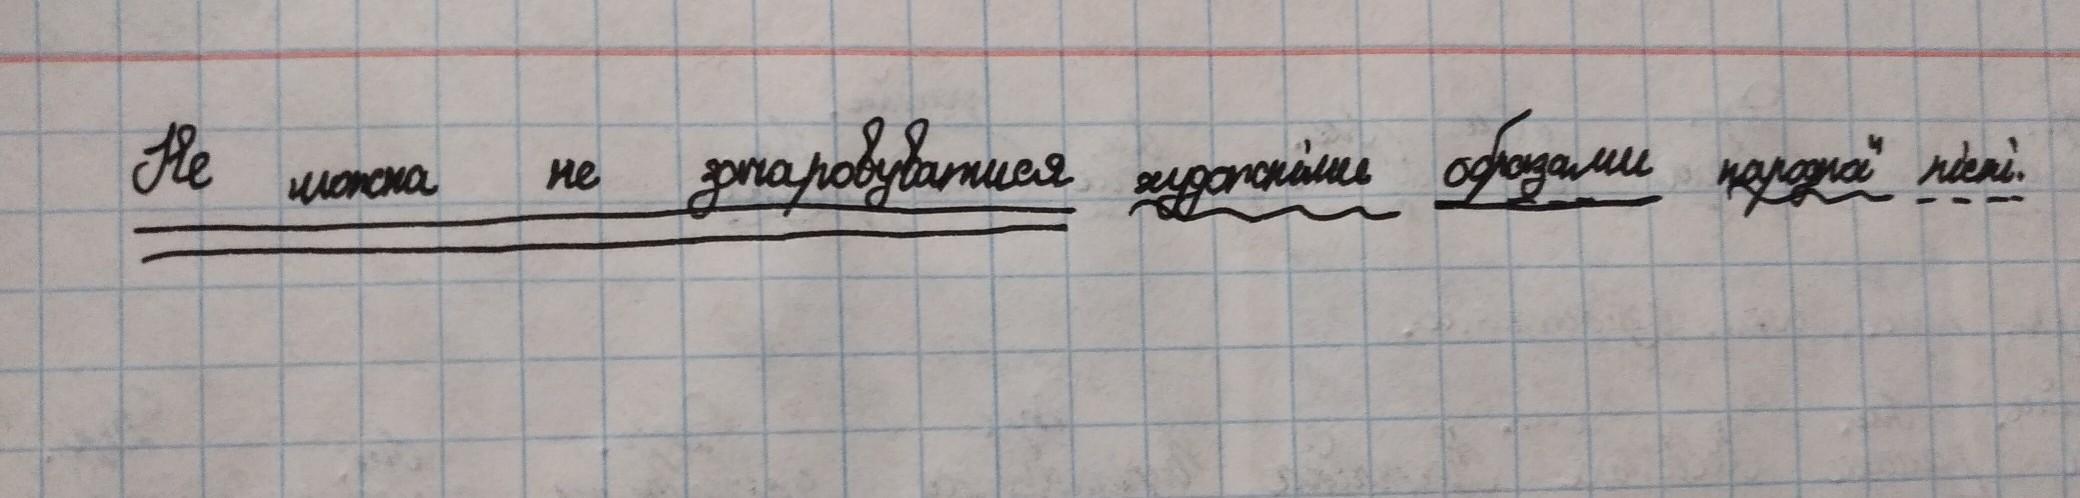 Не можна не зачаровуватися художніми образами народної пісні.